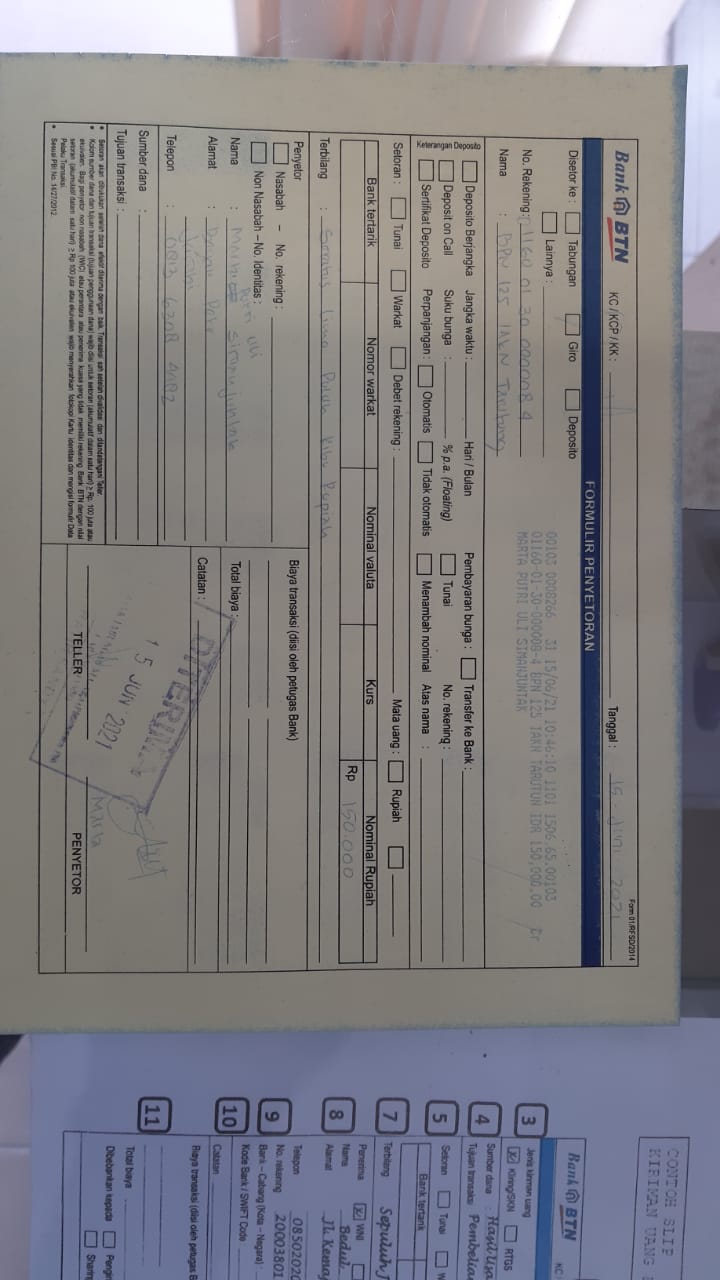 Form 01/RFSD/2014
Bank BTN
KC / KCP / KK :
Tanggal : 15 Juni 2021
FORMULIR PENYETORAN
Disetor ke : Tabungan Giro Deposito
Lainnya :
00103 0008266 31 15/06/21 10:46:10 1101 1506 65.00103
01160-01-30-000008-4 BPN 125 IAKN TARUTUN IDR 150,000.00 Cr
MARTA PUTRI ULI SIMANJUNTAK
No. Rekening : 01160 01 30 000008 4
Nama : BPN 125 IAKN Tarutung
Keterangan Deposito
Deposito Berjangka Jangka waktu : Hari / Bulan Pembayaran bunga : Transfer ke Bank :
Deposit on Call Suku bunga : % p.a. (Floating) Tunai No. rekening :
Sertifikat Deposito Perpanjangan : Otomatis Tidak otomatis Menambah nominal Atas nama :
Setoran : Tunai Warkat Debet rekening : Mata uang : Rupiah
Bank tertarik Nomor warkat Nominal valuta Kurs Nominal Rupiah
Rp 150.000
Terbilang : Seratus Lima Puluh Ribu Rupiah
Penyetor
Nasabah – No. rekening :
Non Nasabah – No. Identitas :
Nama : Marta Putri Uli Simanjuntak
Alamat :
Telepon :
Sumber dana :
Tujuan transaksi :
Biaya transaksi (diisi oleh petugas Bank)
Total biaya :
Catatan :
DITERIMA
15 JUN 2021
TELLER
PENYETOR
Setoran akan dibukukan setelah dana efektif diterima dengan baik. Transaksi sah setelah divalidasi dan ditandatangani Teller.
Kolom sumber dana dan tujuan transaksi (tujuan penggunaan dana) wajib diisi untuk setoran (akumulatif dalam satu hari) ≥ Rp. 100 juta atau
ekuivalen. Bagi penyetor non nasabah (WIC) atau penerima kuasa yang tidak memiliki rekening Bank BTN dengan nilai
setoran (akumulatif dalam satu hari) ≥ Rp 100 juta atau ekuivalen wajib menyerahkan fotokopi Kartu Identitas dan mengisi formulir Data
Pelaku Transaksi.
Sesuai PBI No. 14/27/2012.
CONTOH SLIP
KIRIMAN UANG
Bank BTN
KC
3 Jenis kiriman uang
Kliring/SKN RTGS
4 Sumber dana : Hasil Usa
Tujuan transaksi Pembelia
5 Setoran Tunai W
Bank tertarik
7 Terbilang Sepuluh J
8 Penerima WNI
Nama Bedul
Alamat Jl. Kemaj
Telepon 08502020
9 No. rekening 20003801
Bank – Cabang (Kota – Negara)
Kode Bank / SWIFT Code
10 Catatan
Biaya transaksi (diisi oleh petugas B
11 Total biaya
Dibebankan kepada Pengir
Sharing